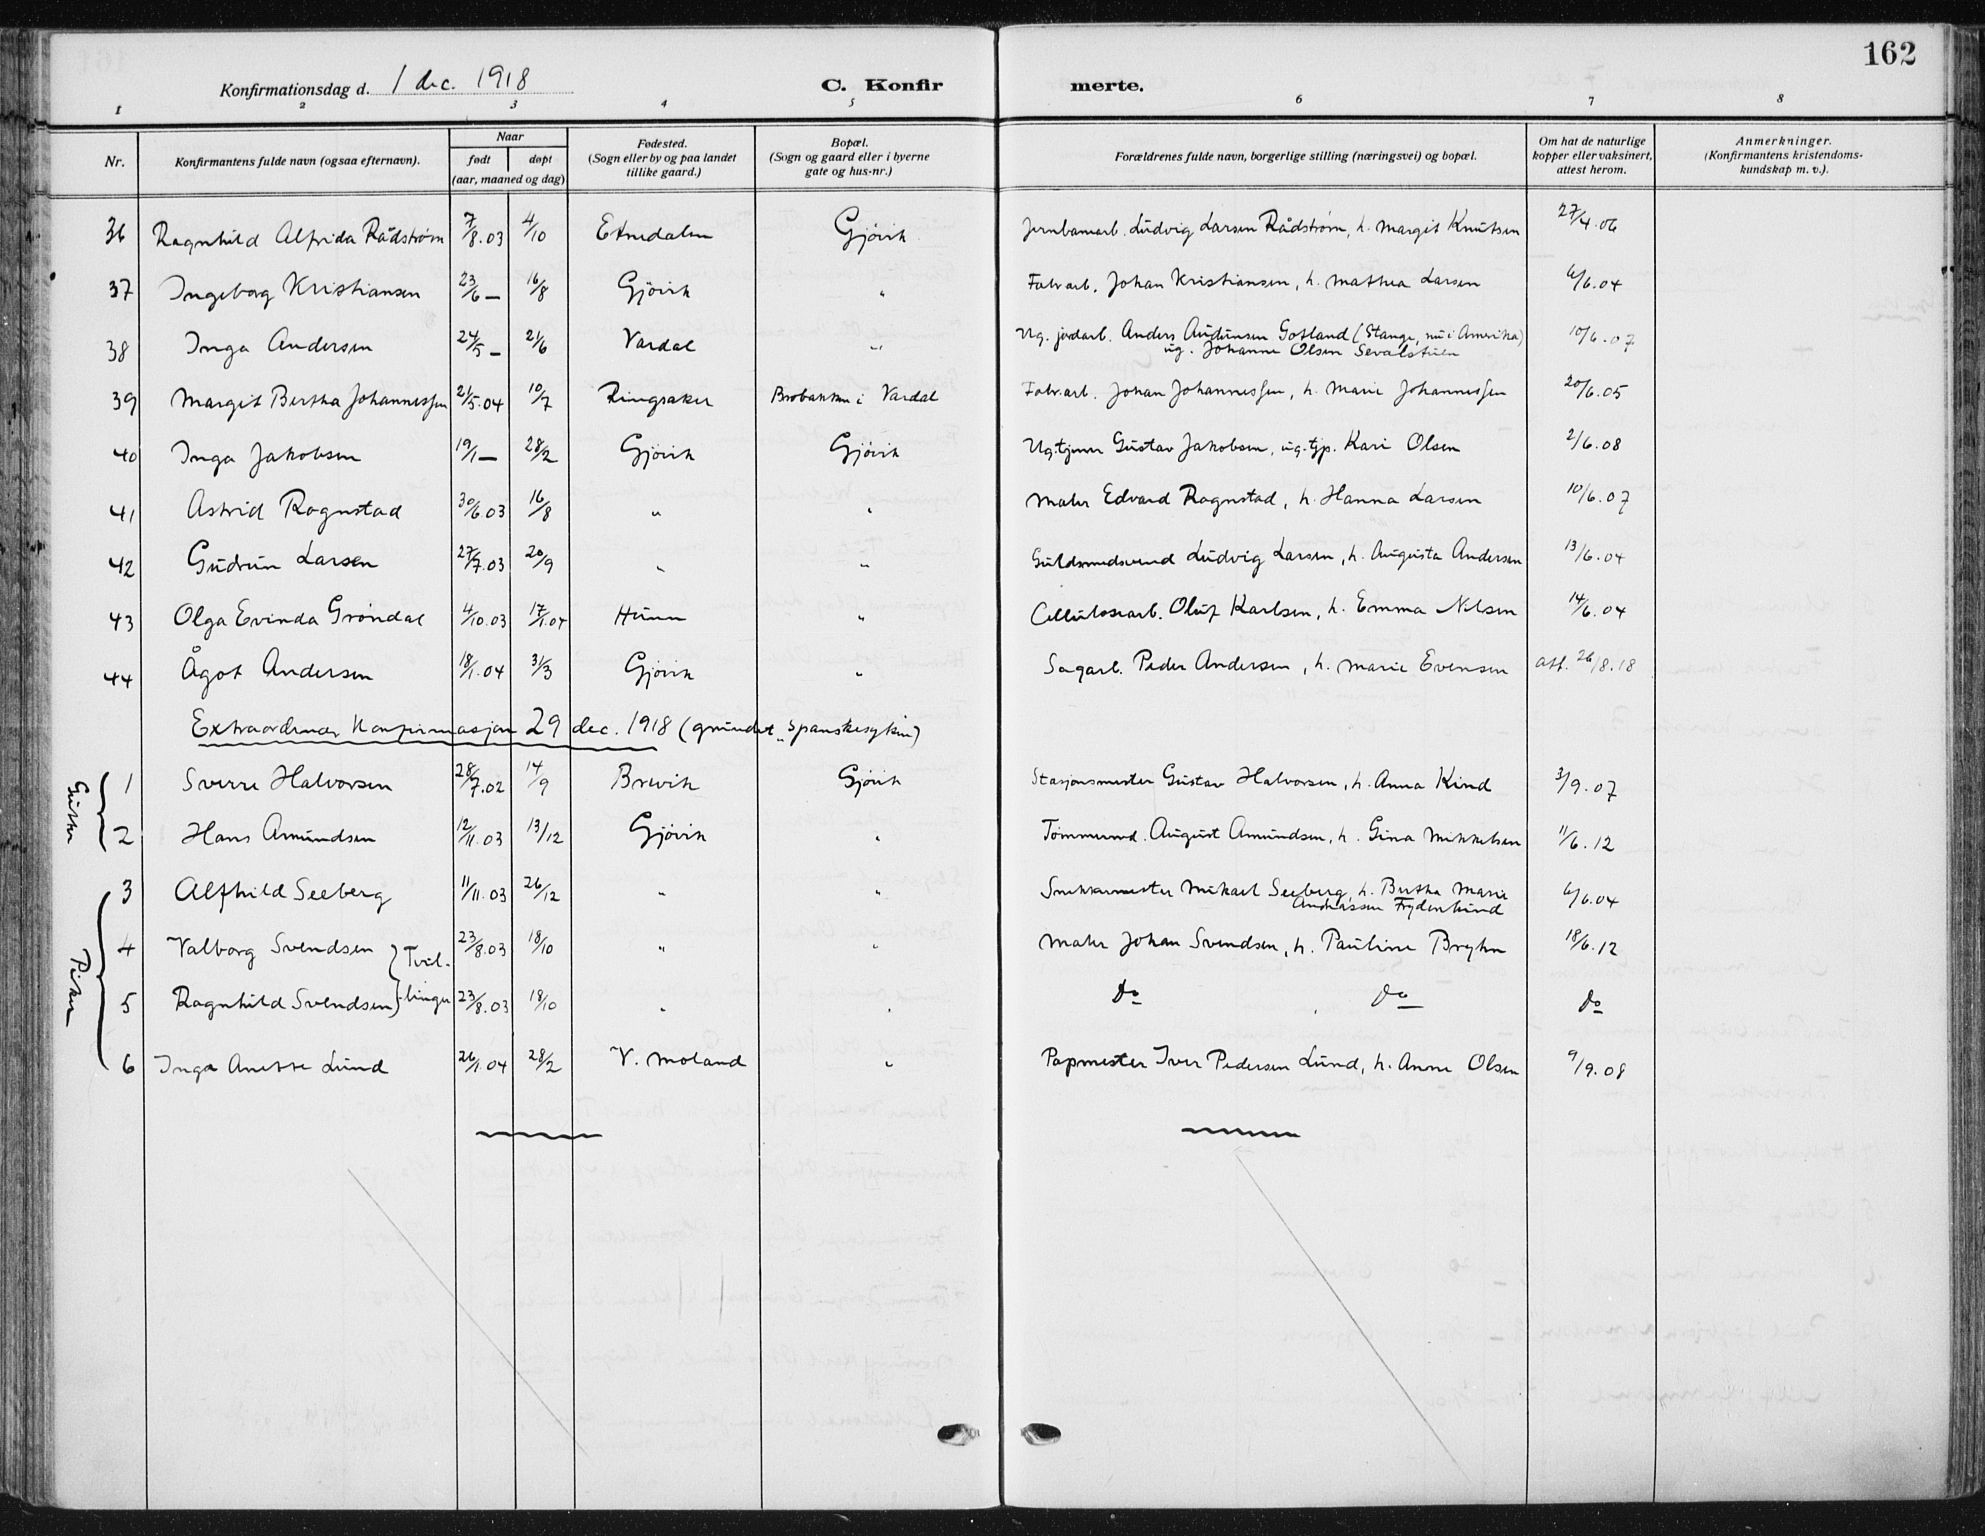 162
Konfirmationsdag d. 1 dec. 1918 C. Konfirmerte.
1 2 3 4 5 6 7 8
Nr. Konfirmantens fulde navn (ogsaa efternavn). Naar født døpt (aar, maaned og dag) Fødested. (Sogn eller by og paa landet tillike gaard.) Bopæl. (Sogn og gaard eller i byerne gate og hus-nr.) Forældrenes fulde navn, borgerlige stilling (næringsvei) og bopæl. Om hat de naturlige kopper eller vaksinert, attest herom. Anmerkninger. (Konfirmantens kristendomskundskap m. v.).
36 Ragnhild Alfrida Rådstrøm 7/8.03 4/10 Etnedalen Gjövik Jernbanarb. Ludvig Larsen Rådstrøm, h. Margit Knutsen 27/4.06
37 Ingeborg Kristiansen 23/6 — 16/8 Gjövik " Fabr.arb. Johan Kristiansen, h. Mathea Larsen 6/6.04
38 Inga Andersen 24/5 — 21/6 Vardal " Ug. jordarb. Anders Audunsen Gotland (Stange, nu i Amerika)
ug. Johanne Olsen Sevalstuen 10/6.07
39 Margit Bertha Johannessen 21/5.04 10/7 Ringsaker Brobakken i Vardal Fabr.arb. Johan Johannessen, h. Marie Johannessen 20/6.05
40 Inga Jakobsen 19/1 — 28/2 Gjövik Gjövik Ug. tjener Gustav Jakobsen, ug. tjp. Kari Olsen 2/6.08
41 Astrid Rognstad 30/6.03 16/8 " " Maler Edvard Rognstad, h. Hanna Larsen 10/6.07
42 Gudrun Larsen 27/7.03 20/9 " " Guldsmedsvend Ludvig Larsen, h. Augusta Andersen 13/6.04
43 Olga Evinda Gröndal 4/10.03 17/1.04 Hunn " Cellulosearb. Oluf Karlsen, h. Emma Nilsen 14/6.04
44 Ågot Andersen 18/1.04 3/3 Gjövik " Sagarb. Peder Andersen, h. Marie Evensen att. 26/8.18
Extraordinær Konfirmasjon 29 dec. 1918 (grundet "Spanskesyken")
Gutter
1 Sverre Halvorsen 28/7.02 14/9 Brevik Gjövik Stasjonsmester Gustav Halvorsen, h. Anna Kind 3/9.07
2 Hans Amundsen 12/11.03 13/12 Gjövik " Tömmermd. August Amundsen, h. Gina Mikkelsen 11/6.12
Piker
3 Alfhild Seeberg 11/11.03 26/12 " " Snekkermester Mikael Seeberg, h. Bertha Marie
Andreassen Frydenlund 6/6.04
4 Valborg Svendsen } Tvil- 23/8.03 18/10 " " Maler Johan Svendsen, h. Pauline Bryhn 18/6.12
5 Ragnhild Svendsen } linger 23/8.03 18/10 " " Do Do Do
6 Inga Anette Lund 26/1.04 28/2 V. Moland " Papmester Iver Pedersen Lund, h. Anne Olsen 9/9.08